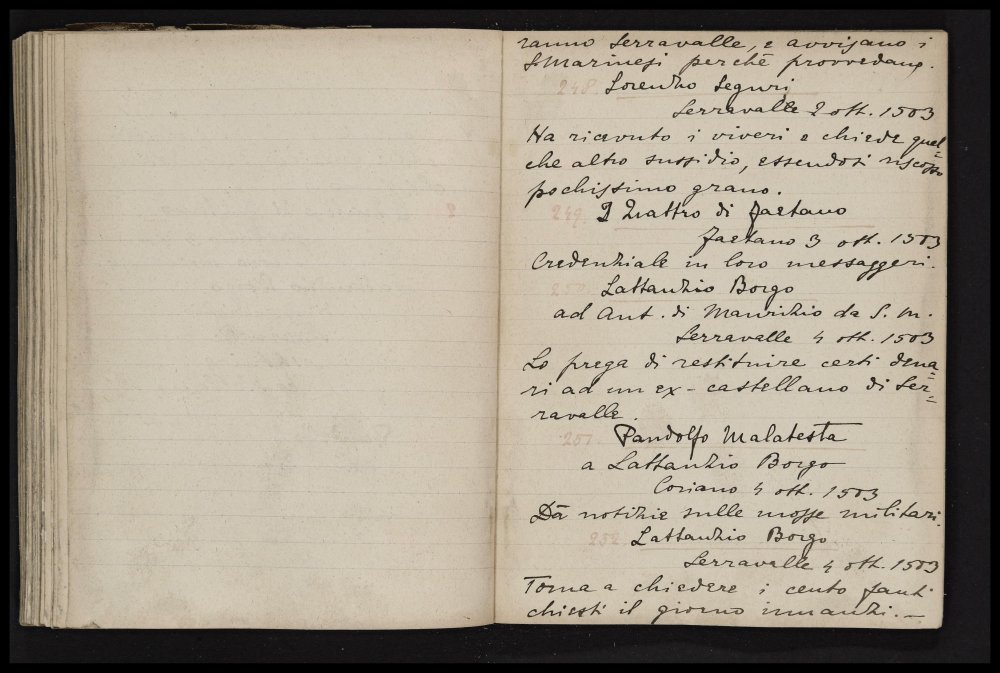 ranno Serravalle, e avvisano i
S. Marinesi perchè provvedano.
248. Lorenzo Seguri
Serravalle 2 ott. 1503
Ha ricevuto i viveri e chiede qual=
che altro sussidio, essendosi riscosso
pochissimo grano.
249. I Quattro di Faetano
Faetano 3 ott. 1503
Credenziale in loro messaggeri.
250. Lattanzio Borgo
ad Ant. di Maurizio da S. M.
Serravalle 4 ott. 1503
Lo prega di restituire certi dena=
ri ad un ex-castellano di Ser=
ravalle.
251. Pandolfo Malatesta
a Lattanzio Borgo
Coriano 4 ott. 1503
Dà notizie sulle mosse militari.
252 Lattanzio Borgo
Serravalle 4 ott. 1503
Torna a chiedere i cento fanti
chiesti il giorno innanzi.—